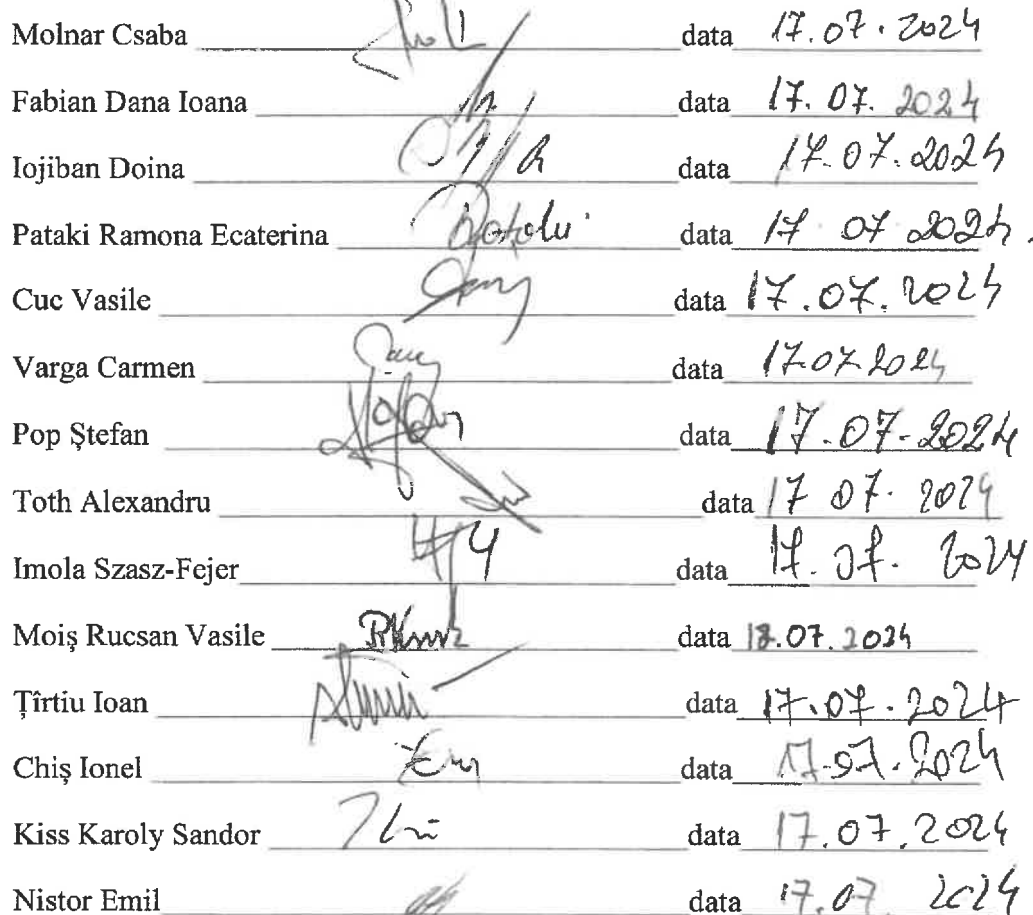 Molnar Csaba data 17.07.2024
Fabian Dana Ioana data 17.07.2024
Iojiban Doina data 17.07.2024
Pataki Ramona Ecaterina data 17 07 2024.
Cuc Vasile data 17.07.2024
Varga Carmen data 17.07.2024
Pop Ștefan data 17.07.2024
Toth Alexandru data 17 07. 2024
Imola Szasz-Fejer data 17.07. 2024
Moiș Rucsan Vasile data .07.2024
Țîrtiu Ioan data 17.07.2024
Chiș Ionel data 17.07.2024
Kiss Karoly Sandor data 17.07.2024
Nistor Emil data 17.07 2024